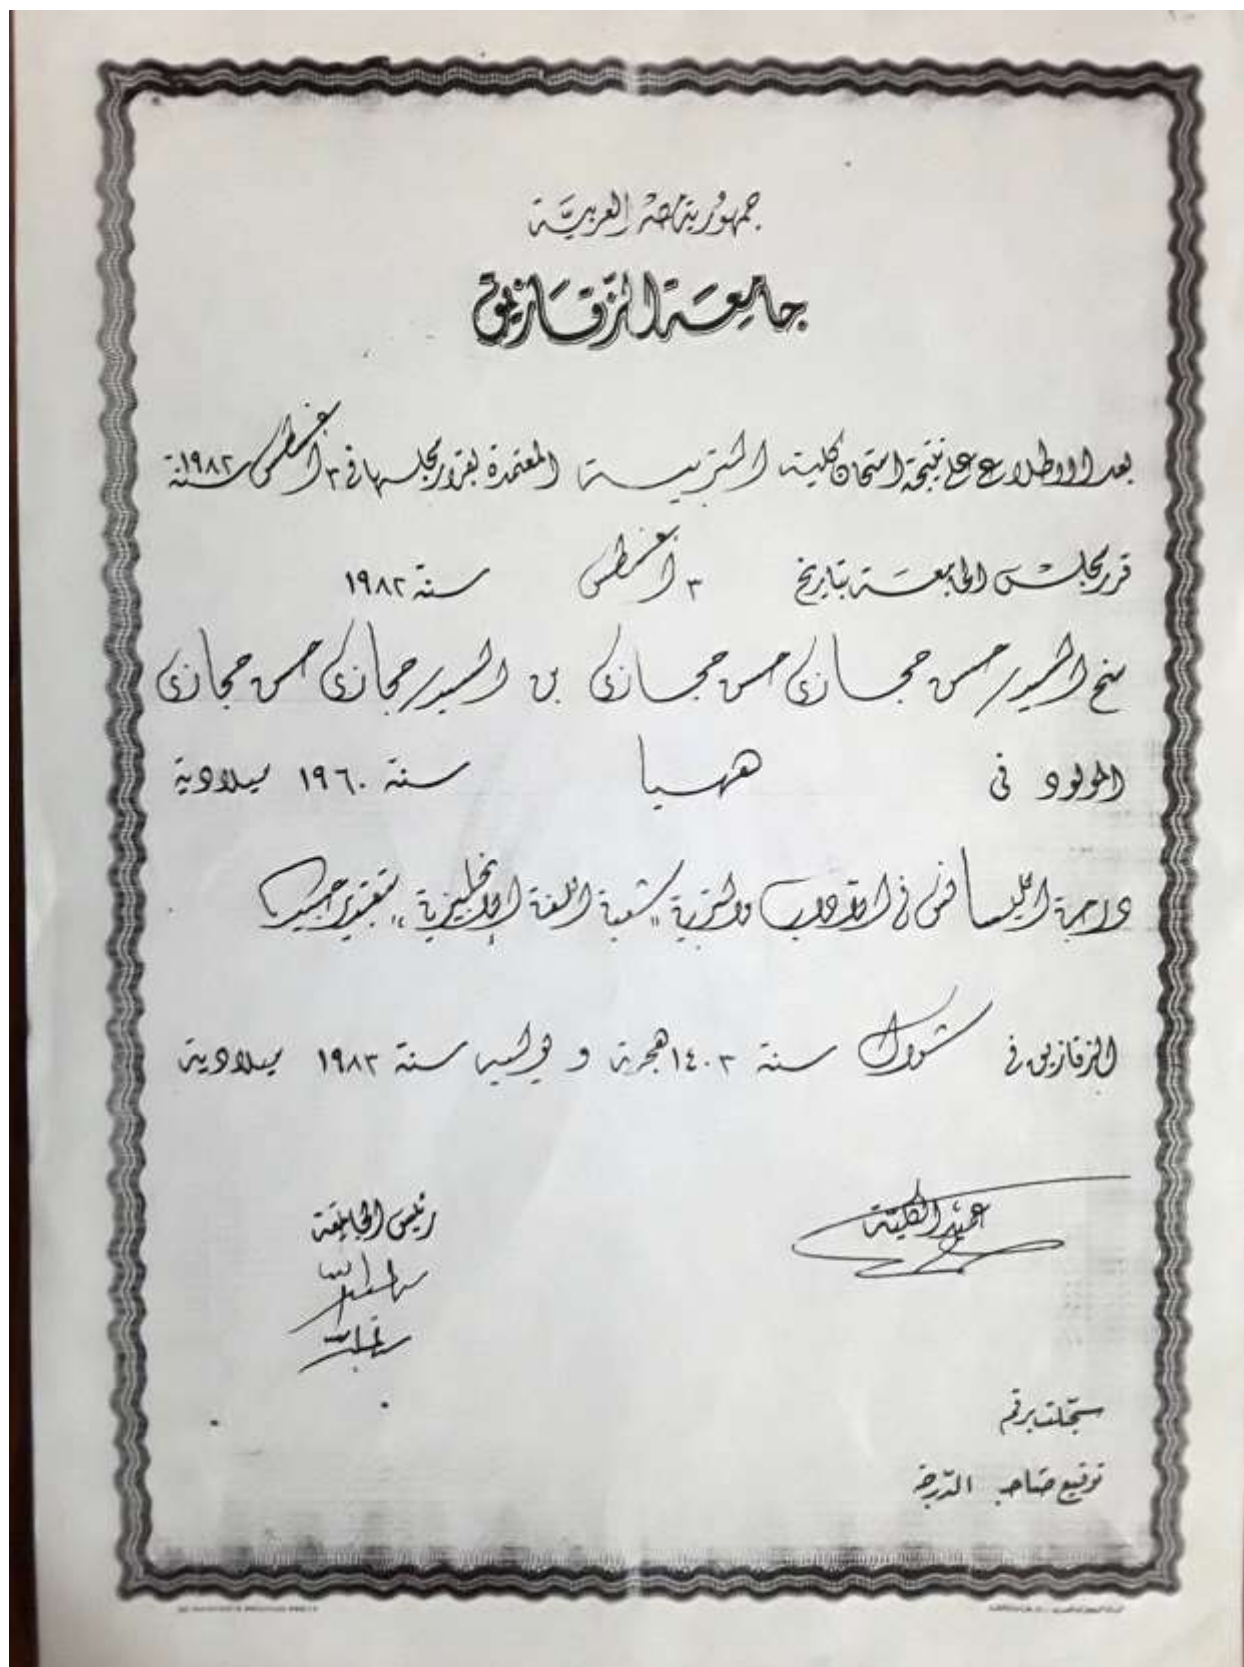 جمهورية مصر العربية
جامعة الزقازيق
بعد الاطلاع على نتيجة امتحان كلية التربية المعتمدة بقرار مجلسها في ٣ أغسطس سنة ١٩٨٢
قرر مجلس الجامعة بتاريخ ٣ أغسطس سنة ١٩٨٢
منح السيد / حسن حجازى حسن حجازى بن السيد / حجازى حسن حجازى
المولود فى ههيا سنة ١٩٦٠ ميلادية
درجة الليسانس فى الآداب والتربية "شعبة اللغة الإنجليزية" بتقدير جيد
الزقازيق فى شوال سنة ١٤٠٣ هجرية و يوليه سنة ١٩٨٣ ميلادية
عميد الكلية
رئيس الجامعة
سجلت برقم
توقيع صاحب الدرجة